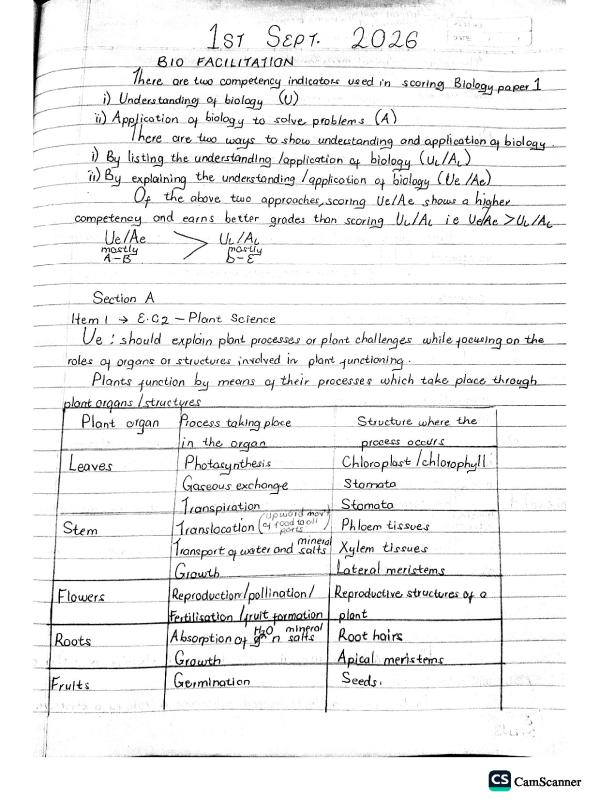 1ST SEPT. 2026
BIO FACILITATION
There are two competency indicators used in scoring Biology paper 1
i) Understanding of biology (U)
ii) Application of biology to solve problems (A)
There are two ways to show understanding and application of biology.
i) By listing the understanding /application of biology (UL/AL)
ii) By explaining the understanding /application of biology (Ue /Ae)
Of the above two approaches, scoring Ue/Ae shows a higher
competency and earns better grades than scoring UL/AL i.e Ue/Ae > UL/AL
Ue/Ae > UL/AL
mostly mostly
A-B D-E
Section A
Item 1 → E.C2 – Plant Science
Ue : should explain plant processes or plant challenges while focusing on the
roles of organs or structures involved in plant functioning.
Plants function by means of their processes which take place through
plant organs /structures
Plant organ Process taking place Structure where the
in the organ process occurs
Leaves Photosynthesis Chloroplast /chlorophyll
Gaseous exchange Stomata
Transpiration Stomata
Stem Translocation (upward mov't of food to all parts) Phloem tissues
Transport of water and mineral salts Xylem tissues
Growth Lateral meristems
Flowers Reproduction/pollination/ Reproductive structures of a
Fertilisation /fruit formation plant
Roots Absorption of H2O n mineral salts Root hairs
Growth Apical meristems
Fruits Germination Seeds.
CS CamScanner